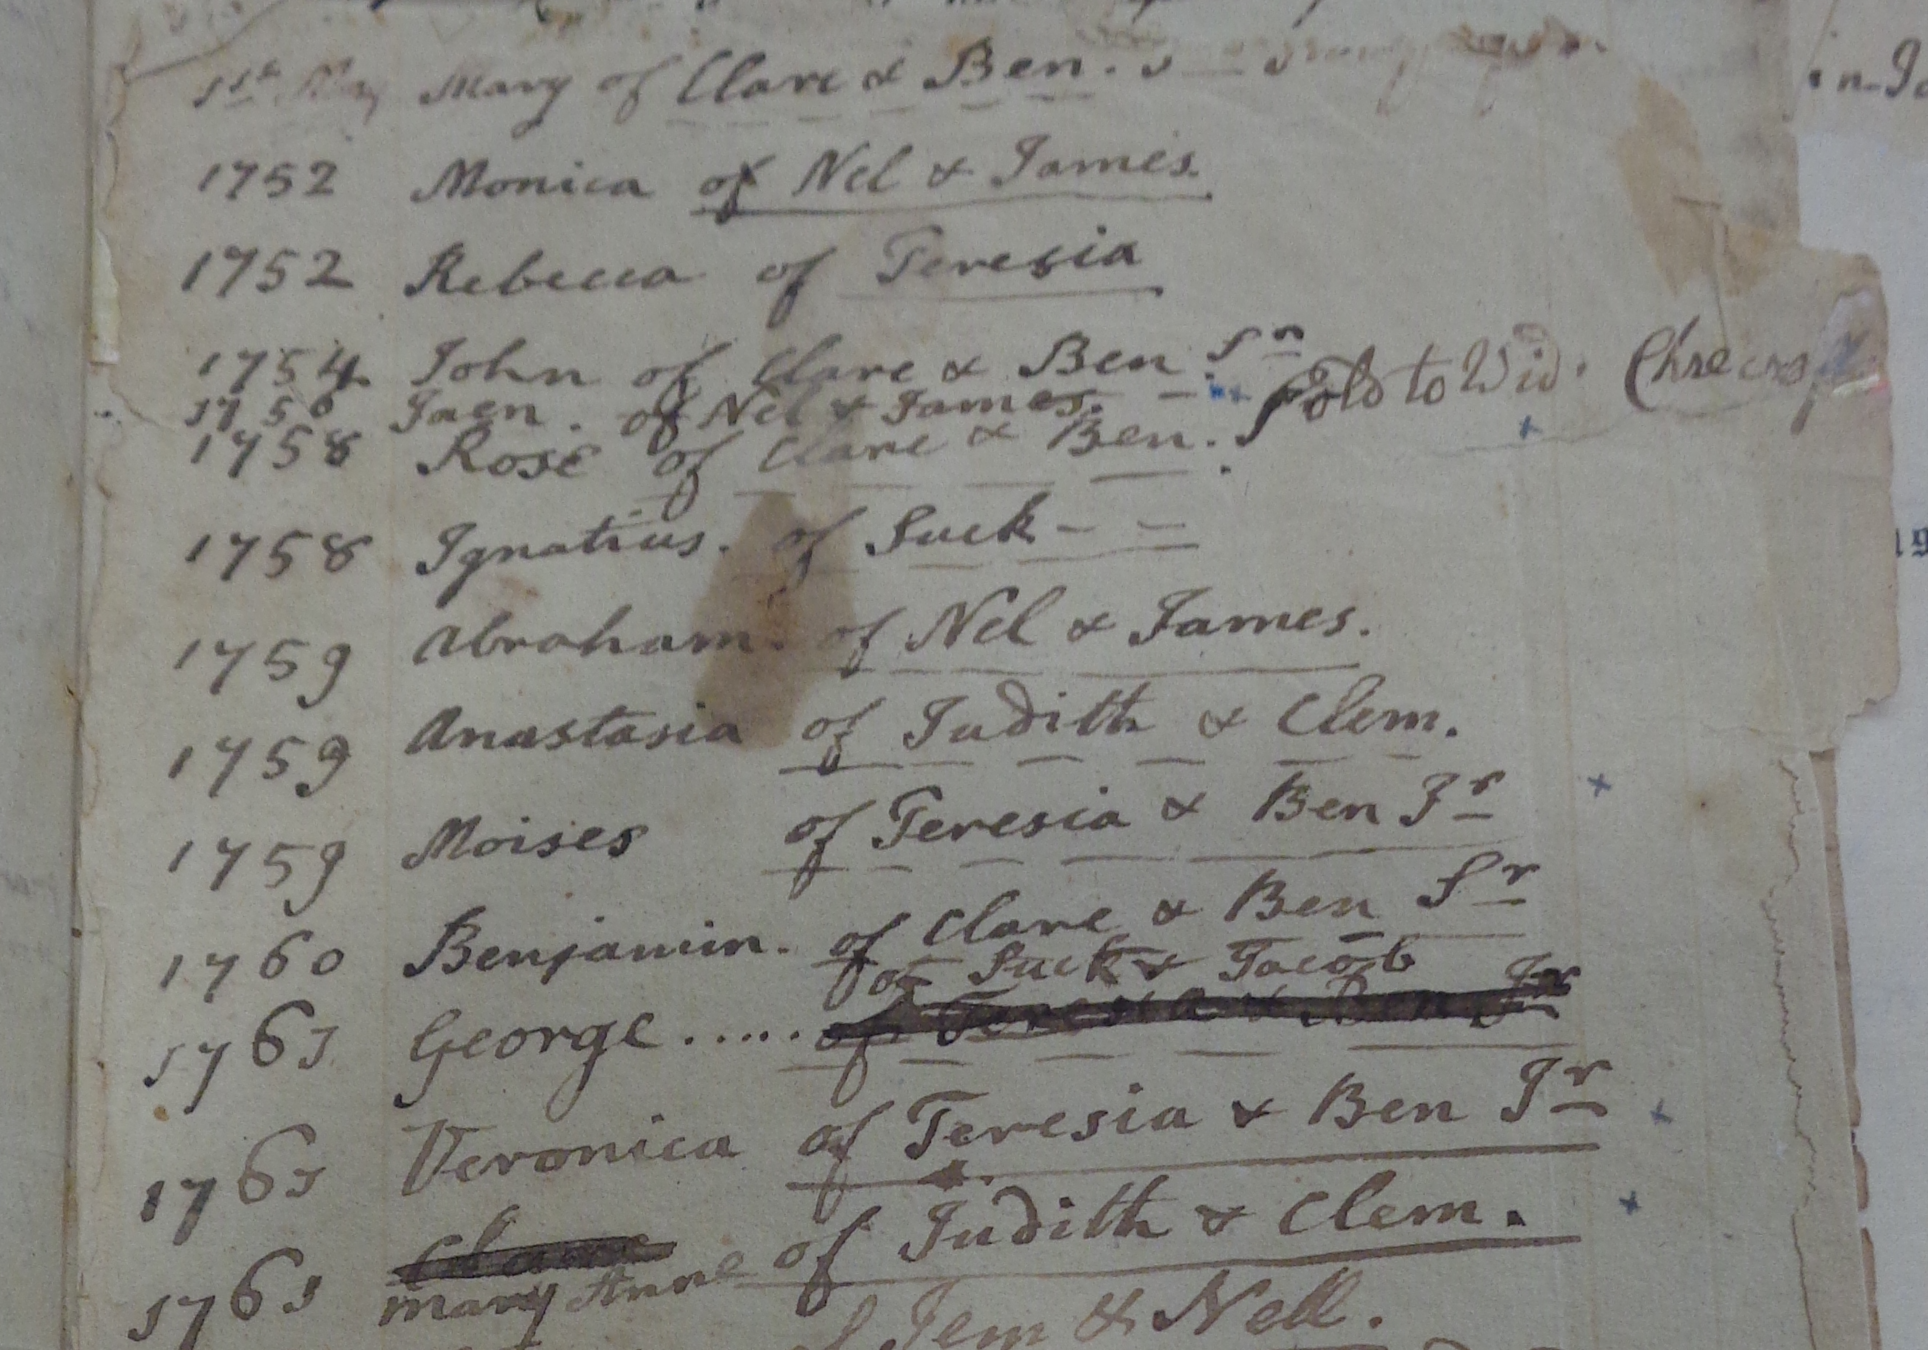 Mary of Clare & Ben.
1752 Monica of Nel & James.
1752 Rebecca of Teresia
1754 John of Clare & Ben. Sr
1756 Jaen. of Nel & James. sold to Wid.
1758 Rose of Clare & Ben. S
1758 Ignatius. of Suck - -
1759 Abraham. of Nel & James.
1759 Anastasia of Judith & Clem.
1759 Moises of Teresia & Ben Jr
1760 Benjamin. of Clare & Ben Sr
of Suck & Jacob
1763 George ..... of Teresia & Ben Jr
1763 Veronica of Teresia & Ben Jr
1763 of Judith & Clem.
Mary Anne
Jem & Nell.